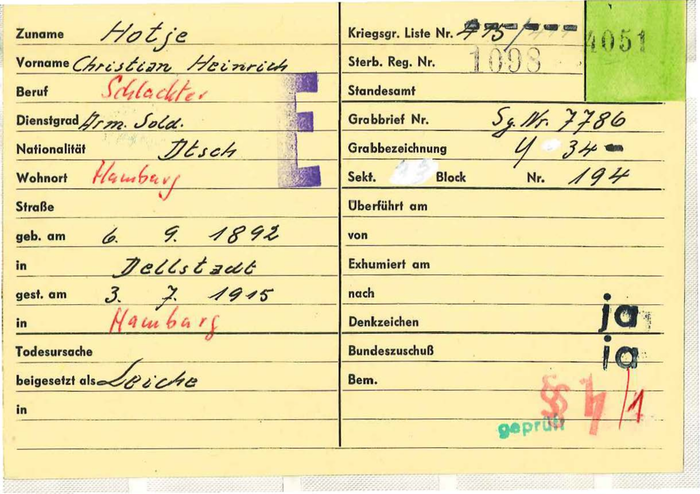 Zuname Hotje
Vorname Christian Heinrich
Beruf Schlachter
Dienstgrad Arm. Sold.
Nationalität Dtsch
Wohnort Hamburg
E
Straße
geb. am 6. 9. 1892
in Dellstadt
gest. am 3. 7. 1915
in Hamburg
Todesursache
beigesetzt als Leiche
in
Kriegsgr. Liste Nr.
4051
Sterb. Reg. Nr. 1098
Standesamt
Grabbrief Nr. Sg. Nr. 7786
Grabbezeichnung Y 34
Sekt. Block Nr. 194
Überführt am
von
Exhumiert am
nach
Denkzeichen ja
Bundeszuschuß ja
Bem.
§§ 1/1
geprüft